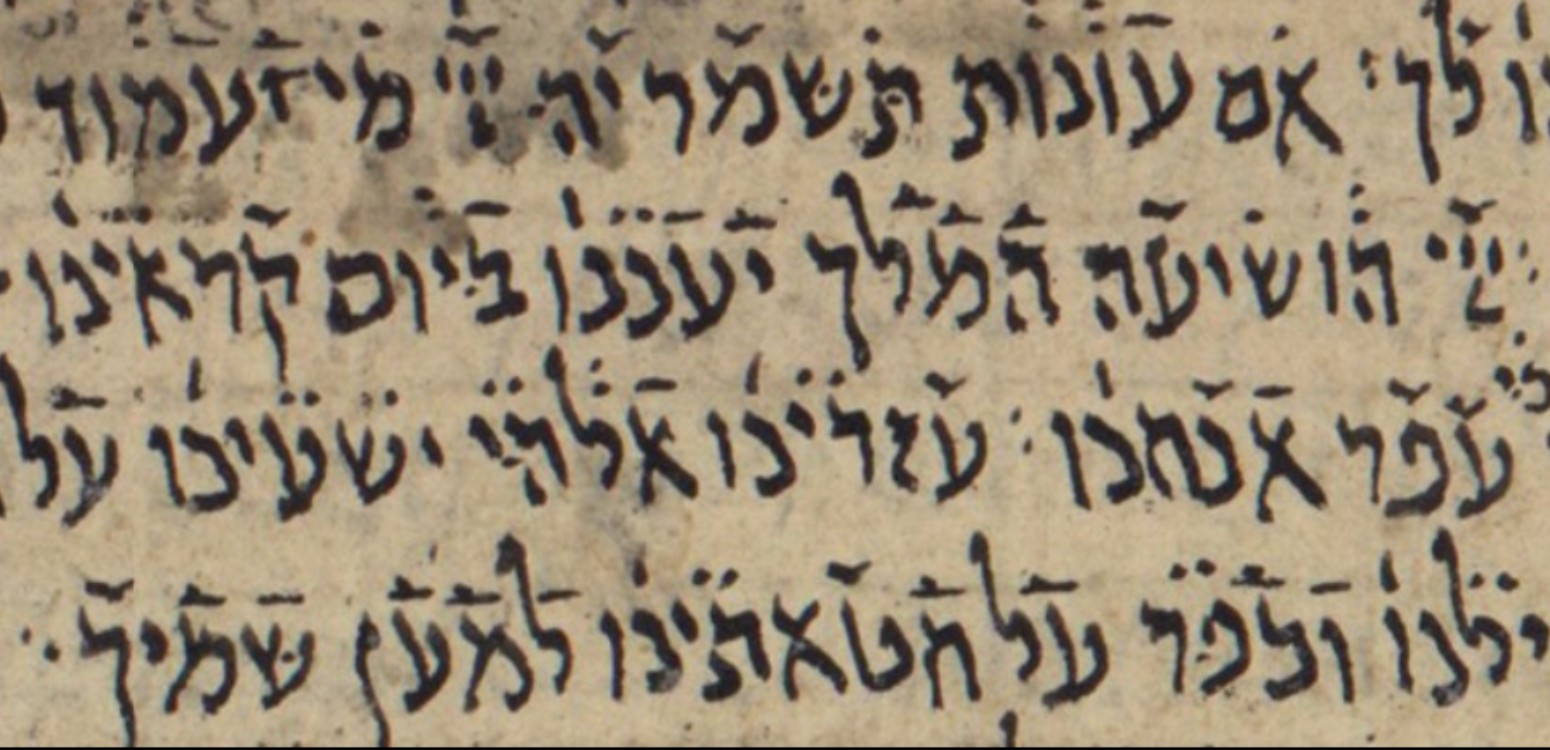 לך׃ אם עונות תשמר יה ייי מי יעמוד
ייי הושיעה המלך יעננו ביום קראינו
כי עפר אנחנו׃ עזרינו אלהי ישעינו על
ילנו וכפר על חטאתינו למען שמיך׃